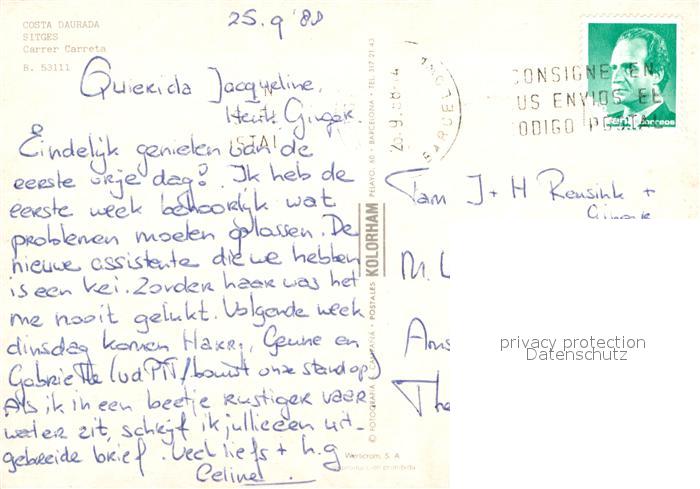 25.9'88
COSTA DAURADA
SITGES
Carrer Carreta
B. 53111
Quierida Jacqueline,
Henk Ginger.
Eindelijk genieten van de
eerste vrije dag! Ik heb de
eerste week behoorlijk wat
problemen moeten oplossen. De
nieuwe assistente die we hebben
is een kei. Zonder haar was het
me nooit gelukt. Volgende week
dinsdag komen Harry, Genne en
Gabrielle (vd PTT/bouwt onze stand op)
Als ik in een beetje rustiger vaar
water zit, schrijf ik jullie een uit-
gebreide brief. Veel liefs + h.g
Celine
© FOTOGRAFIA CAMPAÑA • POSTALES KOLORHAM PELAYO, 60 - BARCELONA - TEL. 317 21 43
Werticrom, S. A.
producción prohibida
25.9.88
BARCEL
CONSIGNE EN
US ENVIOS EL
ODIGO POSTAL
correos
Fam J + H Rensink +
Ginger
M. L
Ams
The
privacy protection
Datenschutz